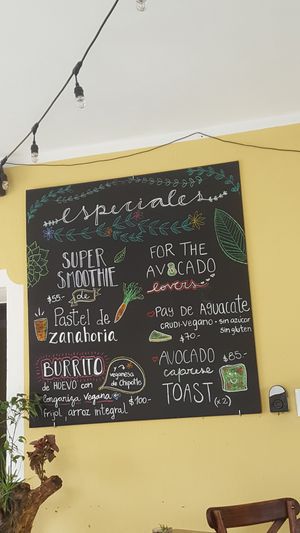 especiales
SUPER
SMOOTHIE
$55- de
Pastel de
zanahoria
BURRITO
de HUEVO con
longaniza vegana
frijol, arroz integral $100-
veganesa
de Chipotle
FOR THE
AVOCADO
lovers
PAY DE AGUACATE
CRUDI-VEGANO - sin azúcar
sin gluten
$70.-
AVOCADO $85.-
caprese
TOAST (x2)